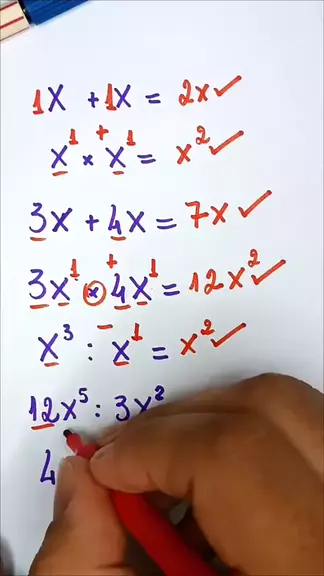 1x + 1x = 2x ✓
x¹ × x¹ = x² ✓
+
3x + 4x = 7x ✓
3x¹ × 4x¹ = 12x² ✓
+
x³ : x¹ = x² ✓
−
12x⁵ : 3x²
4